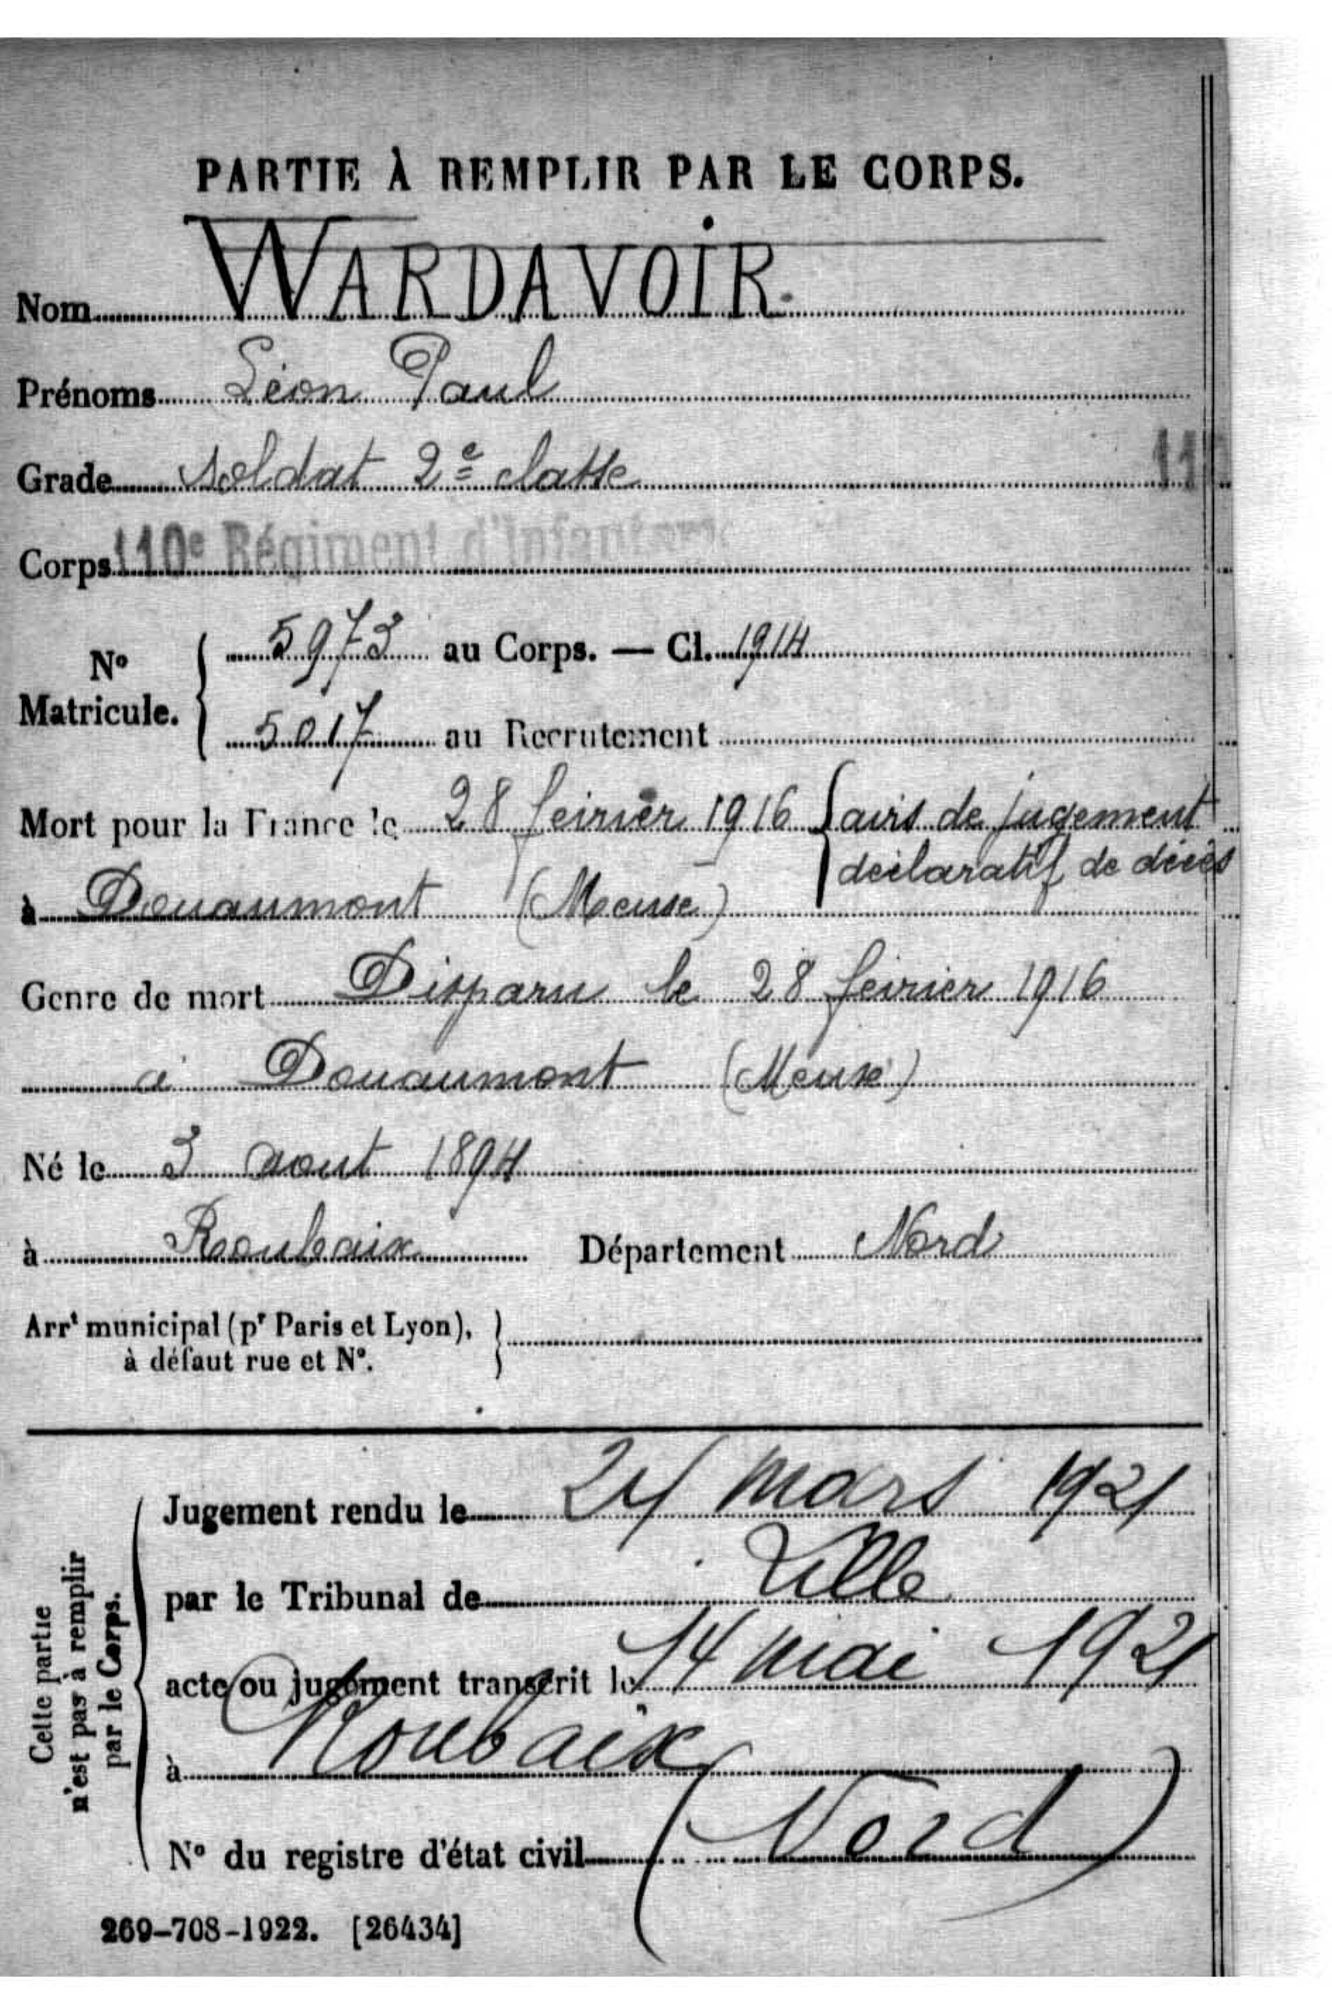 PARTIE À REMPLIR PAR LE CORPS.
Nom WARDAVOIR.
Prénoms Léon Paul
Grade soldat 2e classe 11
Corps 110e Régiment d'Infanterie
No Matricule. 5973 au Corps. — Cl. 1914
5017 au Recrutement
Mort pour la France le 28 février 1916 { avis de jugement
déclaratif de décès
à Douaumont (Meuse)
Genre de mort Disparu le 28 février 1916
à Douaumont (Meuse)
Né le 3 aout 1894
à Roubaix Département Nord
Arrt municipal (pr Paris et Lyon),
à défaut rue et No.
Cette partie
n'est pas à remplir
par le Corps.
Jugement rendu le 24 mars 1921
par le Tribunal de Lille
acte ou jugement transcrit le 14 mai 1921
à Roubaix
No du registre d'état civil (Nord)
269-708-1922. [26434]